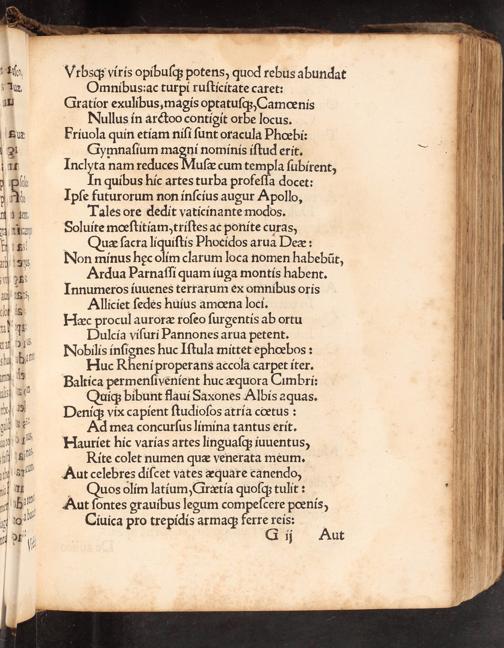 Vrbsqꝫ viris opibusqꝫ potens, quod rebus abundat
Omnibus:ac turpi rusticitate caret:
Gratior exulibus, magis optatusqꝫ, Camœnis
Nullus in arctoo contigit orbe locus.
Friuola quin etiam nisi sunt oracula Phœbi:
Gymnasium magni nominis istud erit.
Inclyta nam reduces Musæ cum templa subirent,
In quibus hic artes turba professa docet:
Ipse futurorum non inscius augur Apollo,
Tales ore dedit vaticinante modos.
Soluite mœstitiam, tristes ac ponite curas,
Quæ sacra liquistis Phocidos arua Deæ:
Non minus hęc olim clarum loca nomen habebūt,
Ardua Parnassi quam iuga montis habent.
Innumeros iuuenes terrarum ex omnibus oris
Alliciet sedes huius amœna loci.
Hæc procul auroræ roseo surgentis ab ortu
Dulcia visuri Pannones arua petent.
Nobilis insignes huc Istula mittet ephœbos:
Huc Rheni properans accola carpet iter.
Baltica permensi venient huc æquora Cimbri:
Quiqꝫ bibunt flaui Saxones Albis aquas.
Deniqꝫ vix capient studiosos atria cœtus:
Ad mea concursus limina tantus erit.
Hauriet hic varias artes linguasqꝫ iuuentus,
Rite colet numen quæ venerata meum.
Aut celebres discet vates æquare canendo,
Quos olim latium, Grætia quosqꝫ tulit:
Aut sontes grauibus legum compescere pœnis,
Ciuica pro trepidis armaqꝫ ferre reis:
G ij Aut